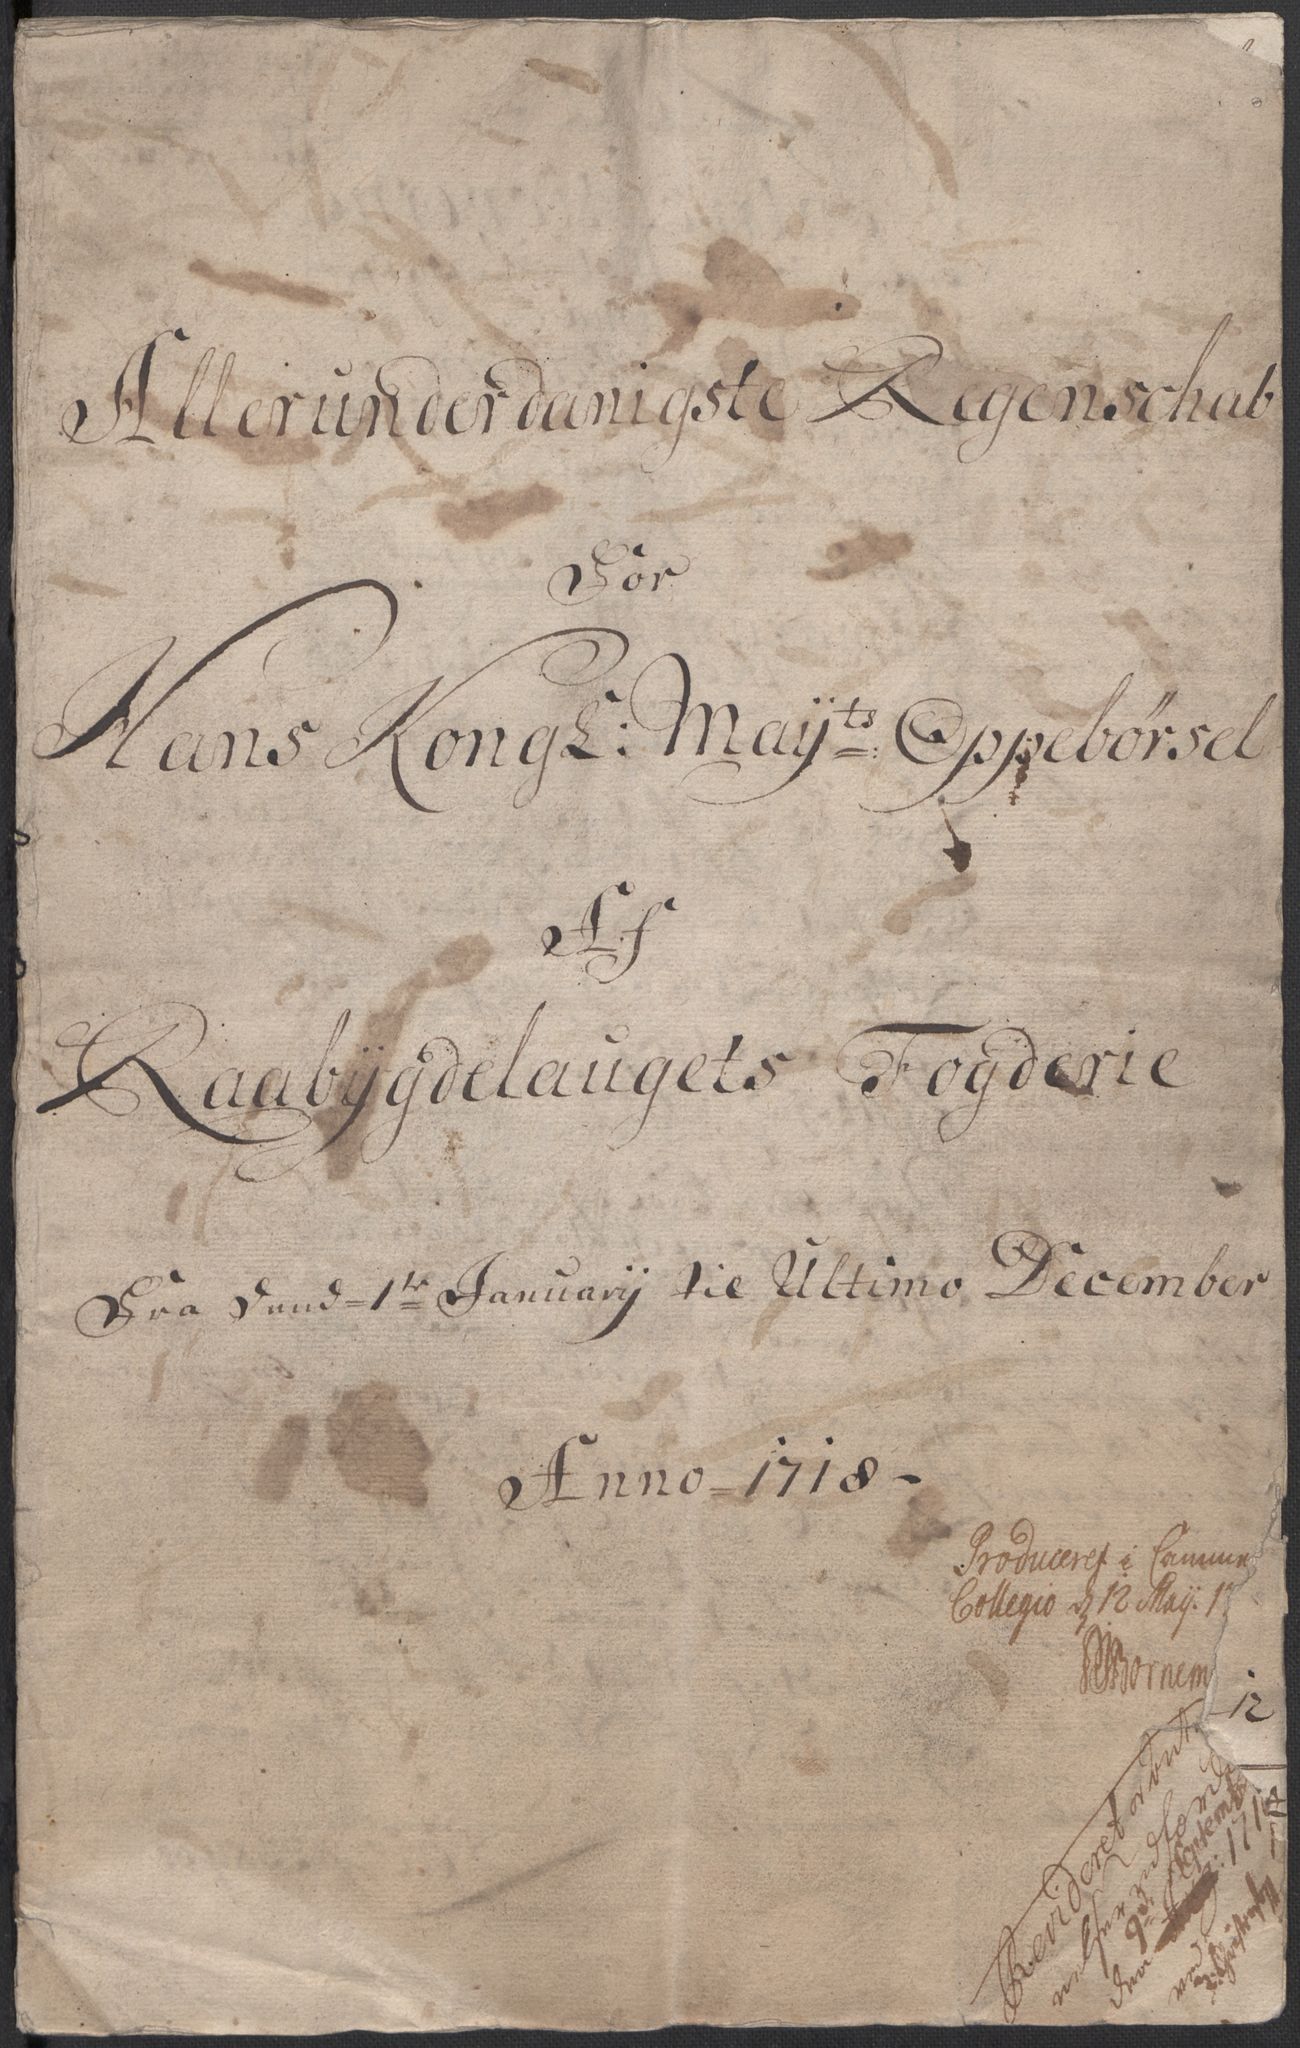 Allerunderdanigste Regenschab
For
Hans Kongl: Maÿts Oppebørsel
Af
Raabÿgdelaugets Fogderie
Fra dend 1te Januarij til Ultimo December
Anno 1718
Produceret i Camme
Collegio d 12 Maÿ. 1
Bornem
12
Revideret
9de Septemb
den 171